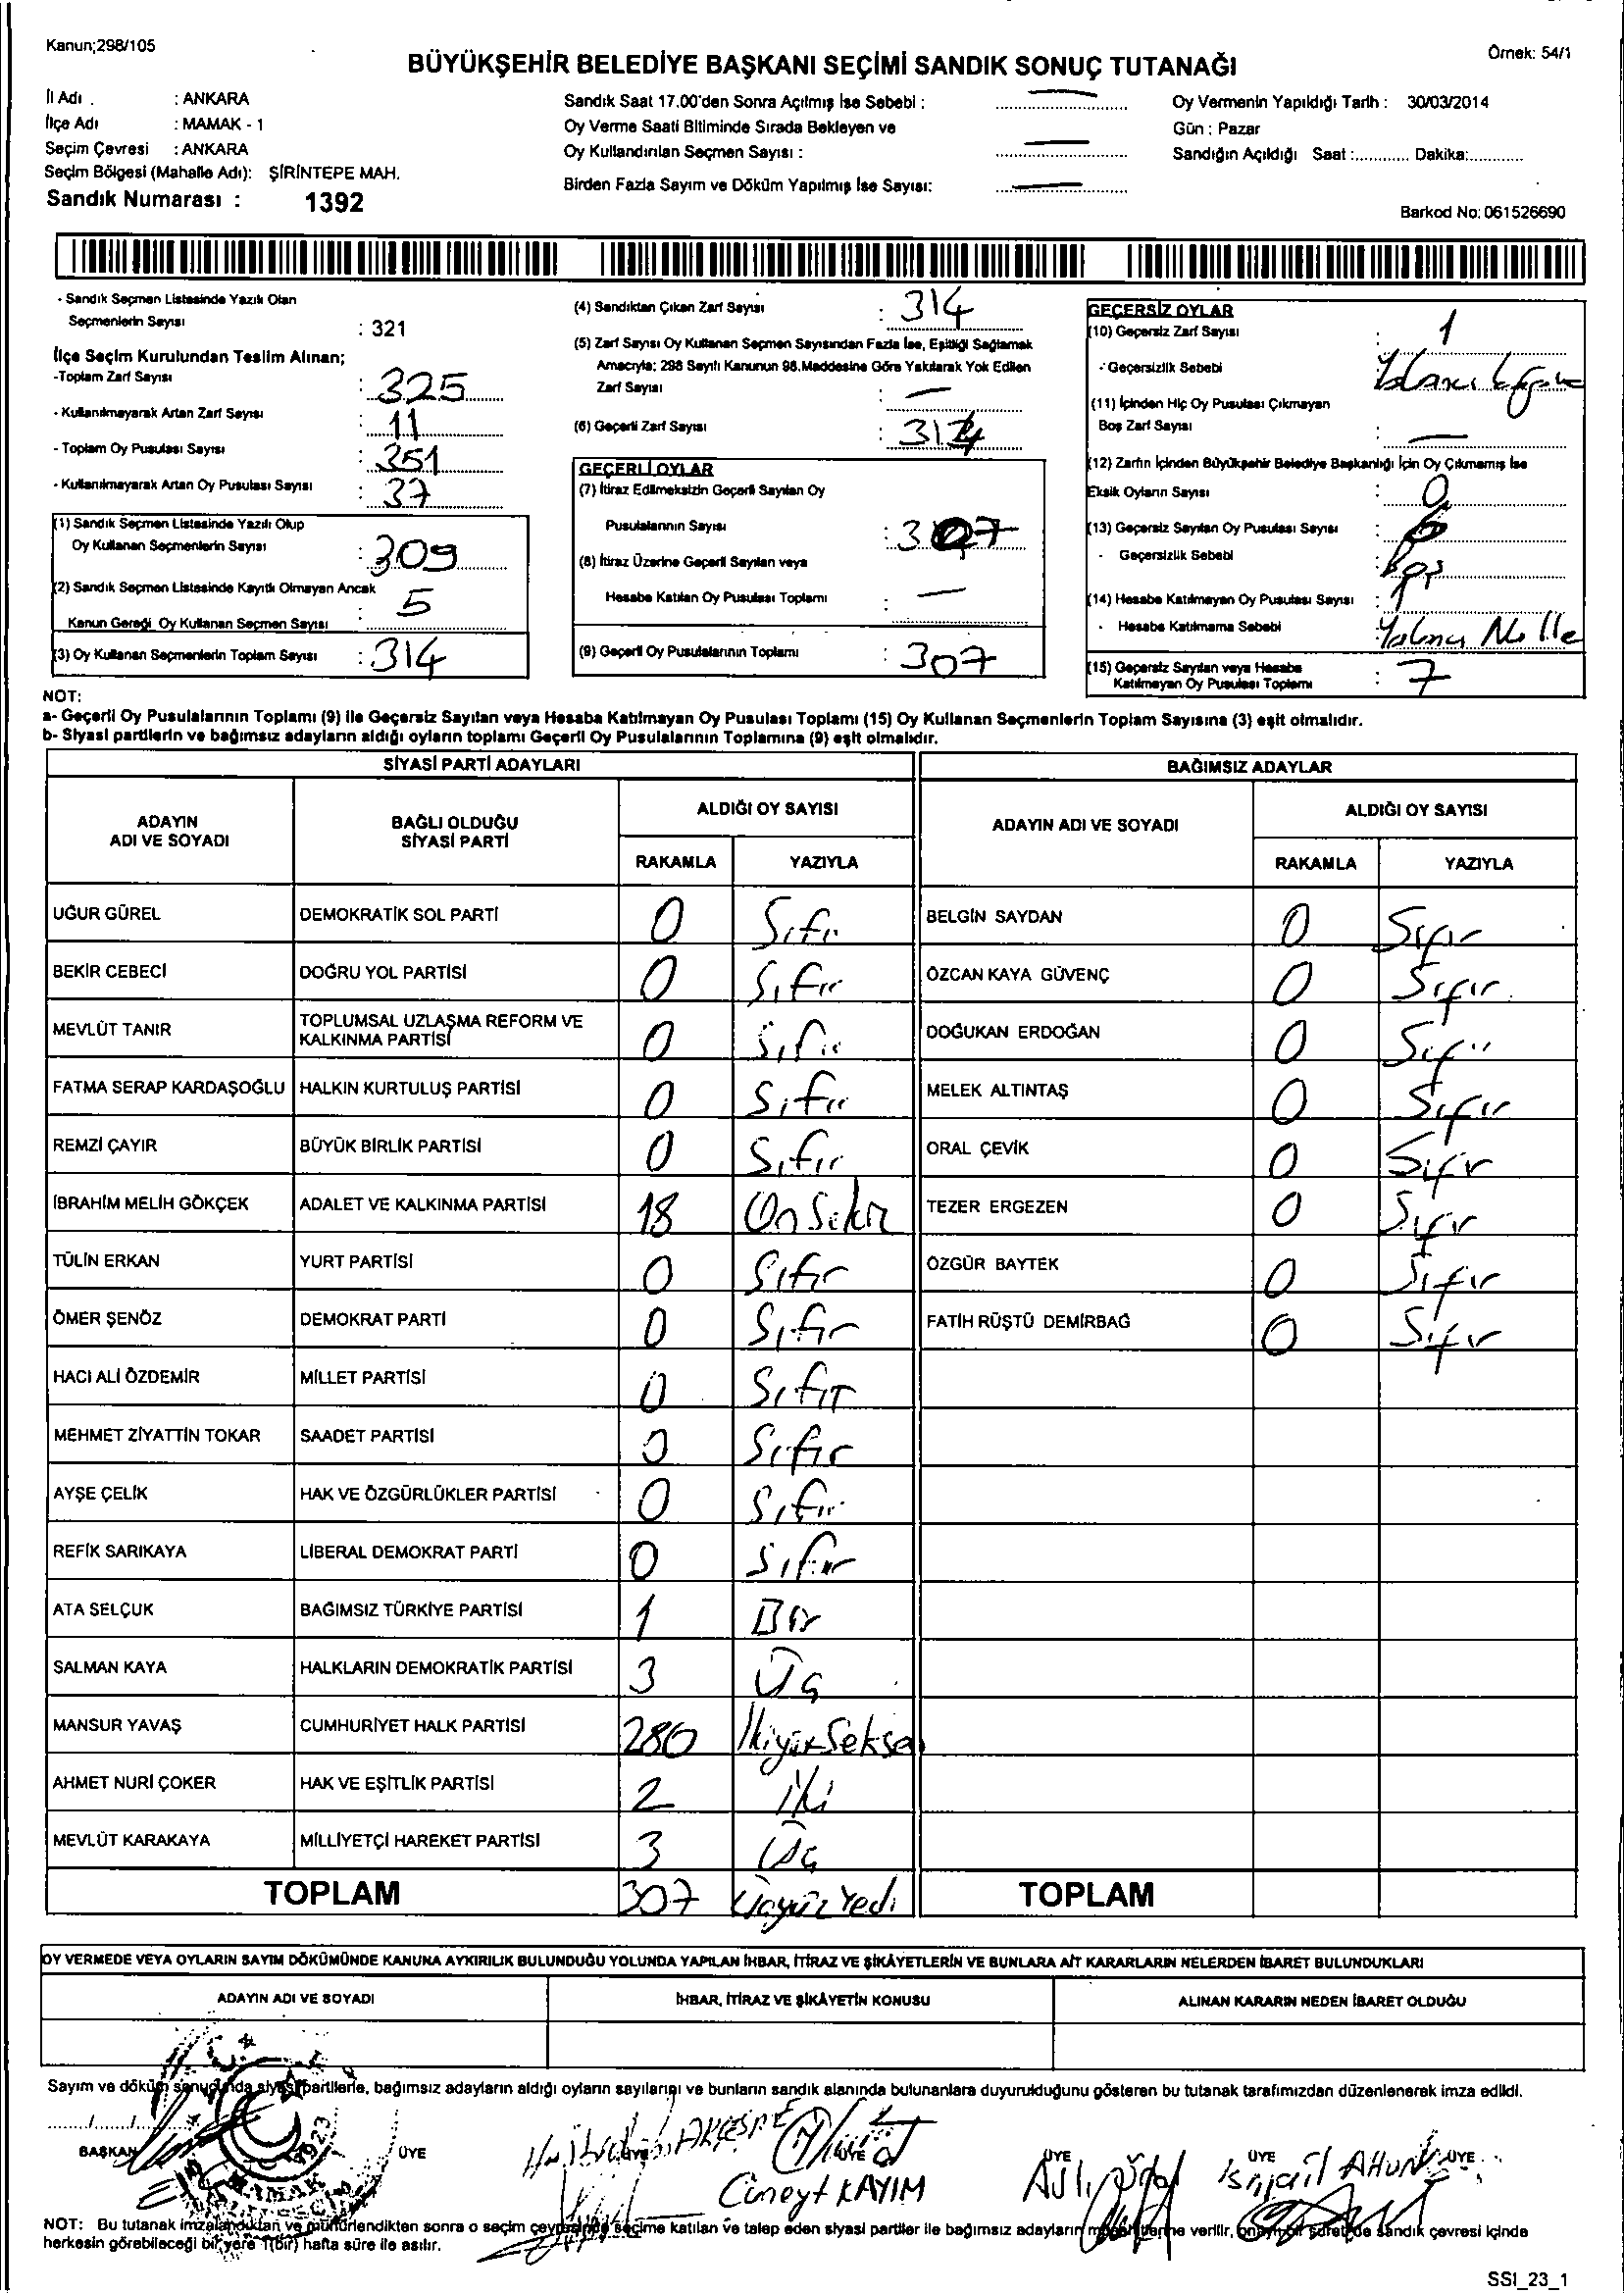 Kanun;298/105
BÜYÜKŞEHİR BELEDİYE BAŞKANI SEÇİMİ SANDIK SONUÇ TUTANAĞI
Örnek: 54/1
İl Adı . : ANKARA
İlçe Adı : MAMAK - 1
Seçim Çevresi : ANKARA
Seçim Bölgesi (Mahalle Adı): ŞİRİNTEPE MAH.
Sandık Numarası : 1392
Sandık Saat 17.00'den Sonra Açılmış İse Sebebi :
Oy Verme Saati Bitiminde Sırada Bekleyen ve
Oy Kullandırılan Seçmen Sayısı :
Birden Fazla Sayım ve Döküm Yapılmış İse Sayısı:
Oy Vermenin Yapıldığı Tarih : 30/03/2014
Gün : Pazar
Sandığın Açıldığı Saat :............ Dakika:............
Barkod No: 061526690
- Sandık Seçmen Listesinde Yazılı Olan
Seçmenlerin Sayısı : 321
İlçe Seçim Kurulundan Teslim Alınan;
-Toplam Zarf Sayısı : 325
- Kullanılmayarak Artan Zarf Sayısı : 11
- Toplam Oy Pusulası Sayısı : 351
- Kullanılmayarak Artan Oy Pusulası Sayısı : 37
(1) Sandık Seçmen Listesinde Yazılı Olup
Oy Kullanan Seçmenlerin Sayısı : 309
(2) Sandık Seçmen Listesinde Kayıtlı Olmayan Ancak
Kanun Gereği Oy Kullanan Seçmen Sayısı : 5
(3) Oy Kullanan Seçmenlerin Toplam Sayısı : 314
(4) Sandıktan Çıkan Zarf Sayısı : 314
(5) Zarf Sayısı Oy Kullanan Seçmen Sayısından Fazla İse, Eşitliği Sağlamak
Amacıyla; 298 Sayılı Kanunun 98.Maddesine Göre Yakılarak Yok Edilen
Zarf Sayısı : —
(6) Geçerli Zarf Sayısı :
GEÇERLİ OYLAR
(7) İtiraz Edilmeksizin Geçerli Sayılan Oy
Pusulalarının Sayısı : 307
(8) İtiraz Üzerine Geçerli Sayılan veya
Hesaba Katılan Oy Pusulası Toplamı : —
(9) Geçerli Oy Pusulalarının Toplamı : 307
GEÇERSİZ OYLAR
(10) Geçersiz Zarf Sayısı : 1
- Geçersizlik Sebebi :
(11) İçinden Hiç Oy Pusulası Çıkmayan
Boş Zarf Sayısı : —
(12) Zarfın İçinden Büyükşehir Belediye Başkanlığı İçin Oy Çıkmamış İse
Eksik Oyların Sayısı : 0
(13) Geçersiz Sayılan Oy Pusulası Sayısı : 6
- Geçersizlik Sebebi :
(14) Hesaba Katılmayan Oy Pusulası Sayısı :
- Hesaba Katılmama Sebebi :
(15) Geçersiz Sayılan veya Hesaba
Katılmayan Oy Pusulası Toplamı : 7
NOT:
a- Geçerli Oy Pusulalarının Toplamı (9) ile Geçersiz Sayılan veya Hesaba Katılmayan Oy Pusulası Toplamı (15) Oy Kullanan Seçmenlerin Toplam Sayısına (3) eşit olmalıdır.
b- Siyasi partilerin ve bağımsız adayların aldığı oyların toplamı Geçerli Oy Pusulalarının Toplamına (9) eşit olmalıdır.
SİYASİ PARTİ ADAYLARI BAĞIMSIZ ADAYLAR
ADAYIN ADI VE SOYADI BAĞLI OLDUĞU SİYASİ PARTİ ALDIĞI OY SAYISI ADAYIN ADI VE SOYADI ALDIĞI OY SAYISI
RAKAMLA YAZIYLA RAKAMLA YAZIYLA
UĞUR GÜREL DEMOKRATİK SOL PARTİ 0 Sıfır BELGİN SAYDAN 0 Sıfır
BEKİR CEBECİ DOĞRU YOL PARTİSİ 0 Sıfır ÖZCAN KAYA GÜVENÇ 0 Sıfır
MEVLÜT TANIR TOPLUMSAL UZLAŞMA REFORM VE KALKINMA PARTİSİ 0 Sıfır DOĞUKAN ERDOĞAN 0 Sıfır
FATMA SERAP KARDAŞOĞLU HALKIN KURTULUŞ PARTİSİ 0 Sıfır MELEK ALTINTAŞ 0 Sıfır
REMZİ ÇAYIR BÜYÜK BİRLİK PARTİSİ 0 Sıfır ORAL ÇEVİK 0 Sıfır
İBRAHİM MELİH GÖKÇEK ADALET VE KALKINMA PARTİSİ 18 On Sekiz TEZER ERGEZEN 0 Sıfır
TÜLİN ERKAN YURT PARTİSİ 0 Sıfır ÖZGÜR BAYTEK 0 Sıfır
ÖMER ŞENÖZ DEMOKRAT PARTİ 0 Sıfır FATİH RÜŞTÜ DEMİRBAĞ 0 Sıfır
HACI ALİ ÖZDEMİR MİLLET PARTİSİ 0 Sıfır
MEHMET ZİYATTİN TOKAR SAADET PARTİSİ 0 Sıfır
AYŞE ÇELİK HAK VE ÖZGÜRLÜKLER PARTİSİ 0 Sıfır
REFİK SARIKAYA LİBERAL DEMOKRAT PARTİ 0 Sıfır
ATA SELÇUK BAĞIMSIZ TÜRKİYE PARTİSİ 1 Bir
SALMAN KAYA HALKLARIN DEMOKRATİK PARTİSİ 3 Üç
MANSUR YAVAŞ CUMHURİYET HALK PARTİSİ 280 İkiyüzSeksen
AHMET NURİ ÇOKER HAK VE EŞİTLİK PARTİSİ 2 İki
MEVLÜT KARAKAYA MİLLİYETÇİ HAREKET PARTİSİ 3 Üç
TOPLAM 307 Üçyüz Yedi TOPLAM
OY VERMEDE VEYA OYLARIN SAYIM DÖKÜMÜNDE KANUNA AYKIRILIK BULUNDUĞU YOLUNDA YAPILAN İHBAR, İTİRAZ VE ŞİKÂYETLERİN VE BUNLARA AİT KARARLARIN NELERDEN İBARET BULUNDUKLARI
ADAYIN ADI VE SOYADI İHBAR, İTİRAZ VE ŞİKÂYETİN KONUSU ALINAN KARARIN NEDEN İBARET OLDUĞU
Sayım ve döküm sonucunda siyasi partilerle, bağımsız adayların aldığı oyların sayılarını ve bunların sandık alanında bulunanlara duyurulduğunu gösteren bu tutanak tarafımızdan düzenlenerek imza edildi.
....../....../......
BAŞKAN ÜYE ÜYE ÜYE ÜYE ÜYE
Cüneyt KAYIM
1923
MAMAK
NOT: Bu tutanak imzalandıktan ve mühürlendikten sonra o seçim çevresinde seçime katılan ve talep eden siyasi partiler ile bağımsız adayların müşahitlerine verilir, onaylı bir sureti de sandık çevresi içinde
herkesin görebileceği bir yere 1(bir) hafta süre ile asılır.
SSI_23_1